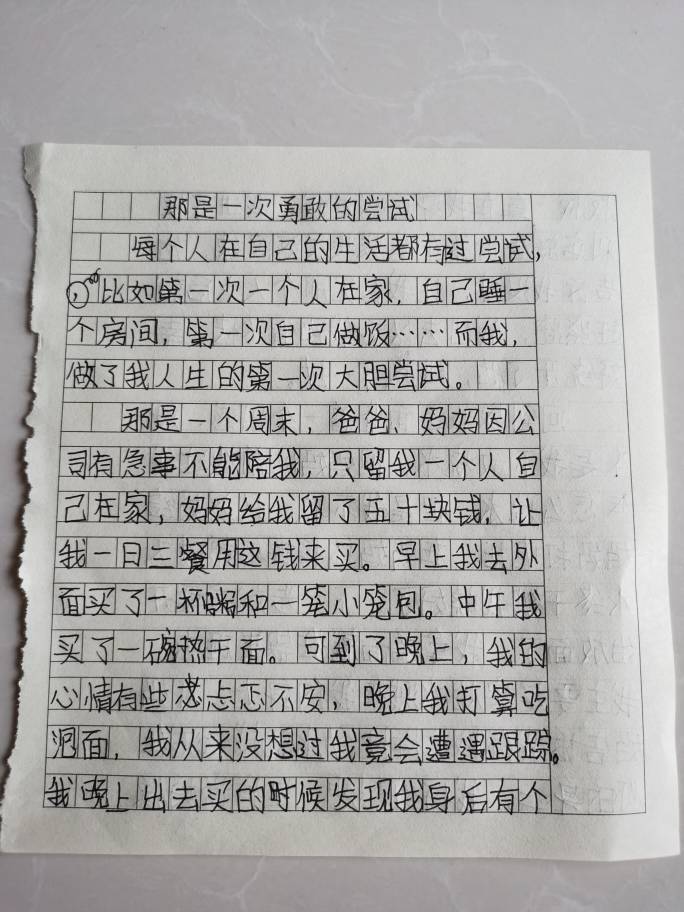 那是一次勇敢的尝试
每个人在自己的生活都有过尝试，
，比如第一次一个人在家，自己睡一
个房间，第一次自己做饭……而我，
做了我人生的第一次大胆尝试。
那是一个周末，爸爸、妈妈因公
司有急事不能陪我，只留我一个人自
己在家，妈妈给我留了五十块钱，让
我一日三餐用这钱来买。早上我去外
面买了一杯粥和一笼小笼包。中午我
买了一碗热干面。可到了晚上，我的
心情有些忐忑不安，晚上我打算吃
泡面，我从来没想过我竟会遭遇跟踪。
我晚上出去买的时候发现我身后有个